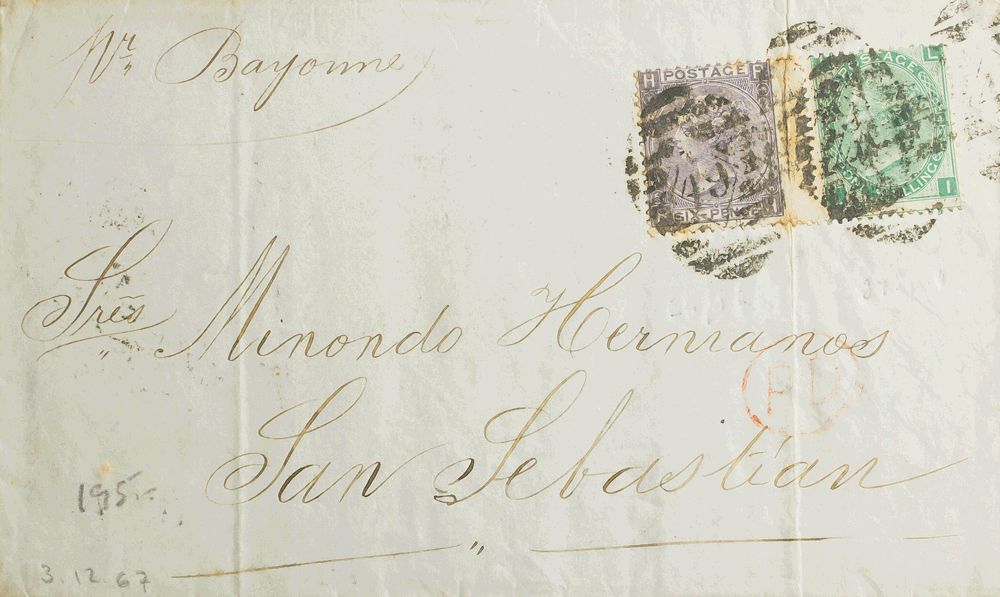 pr. Bayonne
H POSTAGE P
SIX-PENCE
POSTAGE L
SHILLING I
Sres Minondo Hermanos
PD
San Sebastían
195
3.12.67